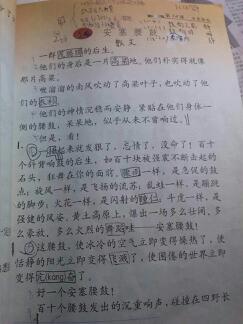 安塞腰鼓
散文
一群茂腾腾的后生。
他们的身后是一片高粱地。他们朴实得就像
那片高粱。
咝溜溜的南风吹动了高粱叶子，也吹动了他
们的衣衫。
他们的神情沉稳而安静。紧贴在他们身体一
侧的腰鼓，呆呆地，似乎从来不曾响过。
但是，看！
一捶起来就发狠了，忘情了，没命了！百十
个斜背响鼓的后生，如百十块被强震不断击起的
石头，狂舞在你的面前。骤雨一样，是急促的鼓
点；旋风一样，是飞扬的流苏；乱蛙一样，是蹦跳
的脚步；火花一样，是闪射的瞳仁；斗虎一样，是
强健的风姿。黄土高原上，爆出一场多么壮阔、多
么豪放、多么火烈的舞蹈哇——安塞腰鼓！
这腰鼓，使冰冷的空气立即变得燥热了，使
恬静的阳光立即变得飞溅了，使困倦的世界立即
变得亢(kàng)奋了。
好一个安塞腰鼓！
百十个腰鼓发出的沉重响声，碰撞在四野长